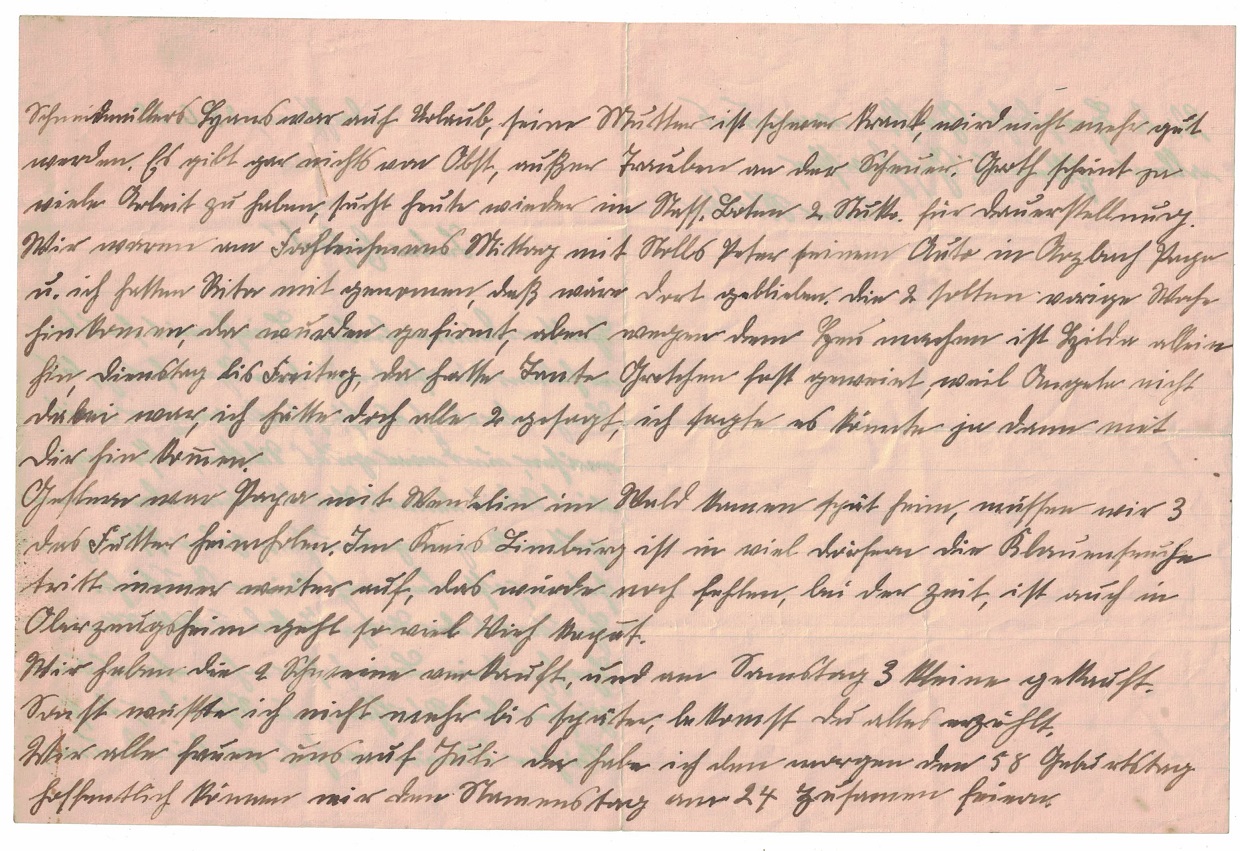 Schneidmüllers Hans war auf Urlaub, seine Mutter ist schwer krank, wird nicht mehr gut
werden. Es gibt gar nichts von Obst, außer Trauben an der Scheuer. Groth scheint zu
viele Arbeit zu haben, sucht heute wieder im Nass. Boten 2 Stukk. für Dauerstellung.
Wir waren am Frohleichnams Mittag mit Nolls Peter seinem Auto in Arzbach Papa
u. ich hatten Rita mit genomen, daß wäre dort geblieben. die 2 solten vorige Woche
hinkomen, da wurden gefirmt, aber wegen dem Heu machen ist Hilda allein
hin, Dienstag bis Freitag, da hatte Tante Gretchen fast geweint, weil Angela nicht
dabei war, ich hätte doch alle 2 gesagt, ich sagte es könnte ja dann mit
Dir hin kommen.
Gestern war Papa mit Wendelin im Wald kamen spät heim, mussten wir 3
das Futter heimholen. Im Kreis Limburg ist in viel Dörfern die Klauenseuche
tritt immer weiter auf, das würde noch fehlen, bei der Zeit, ist auch in
Oberzeugsheim geht so viel Vieh kaput.
Wir haben die 2 Schweine verkauft, und am Samstag 3 kleine gekauft.
Sonst wusste ich nicht mehr bis später, bekomst du alles erzählt.
Wir alle freuen uns auf Juli da habe ich den morgen den 58 Geburtstag
hoffentlich können wir den Namenstag am 24 zusamen feiern.